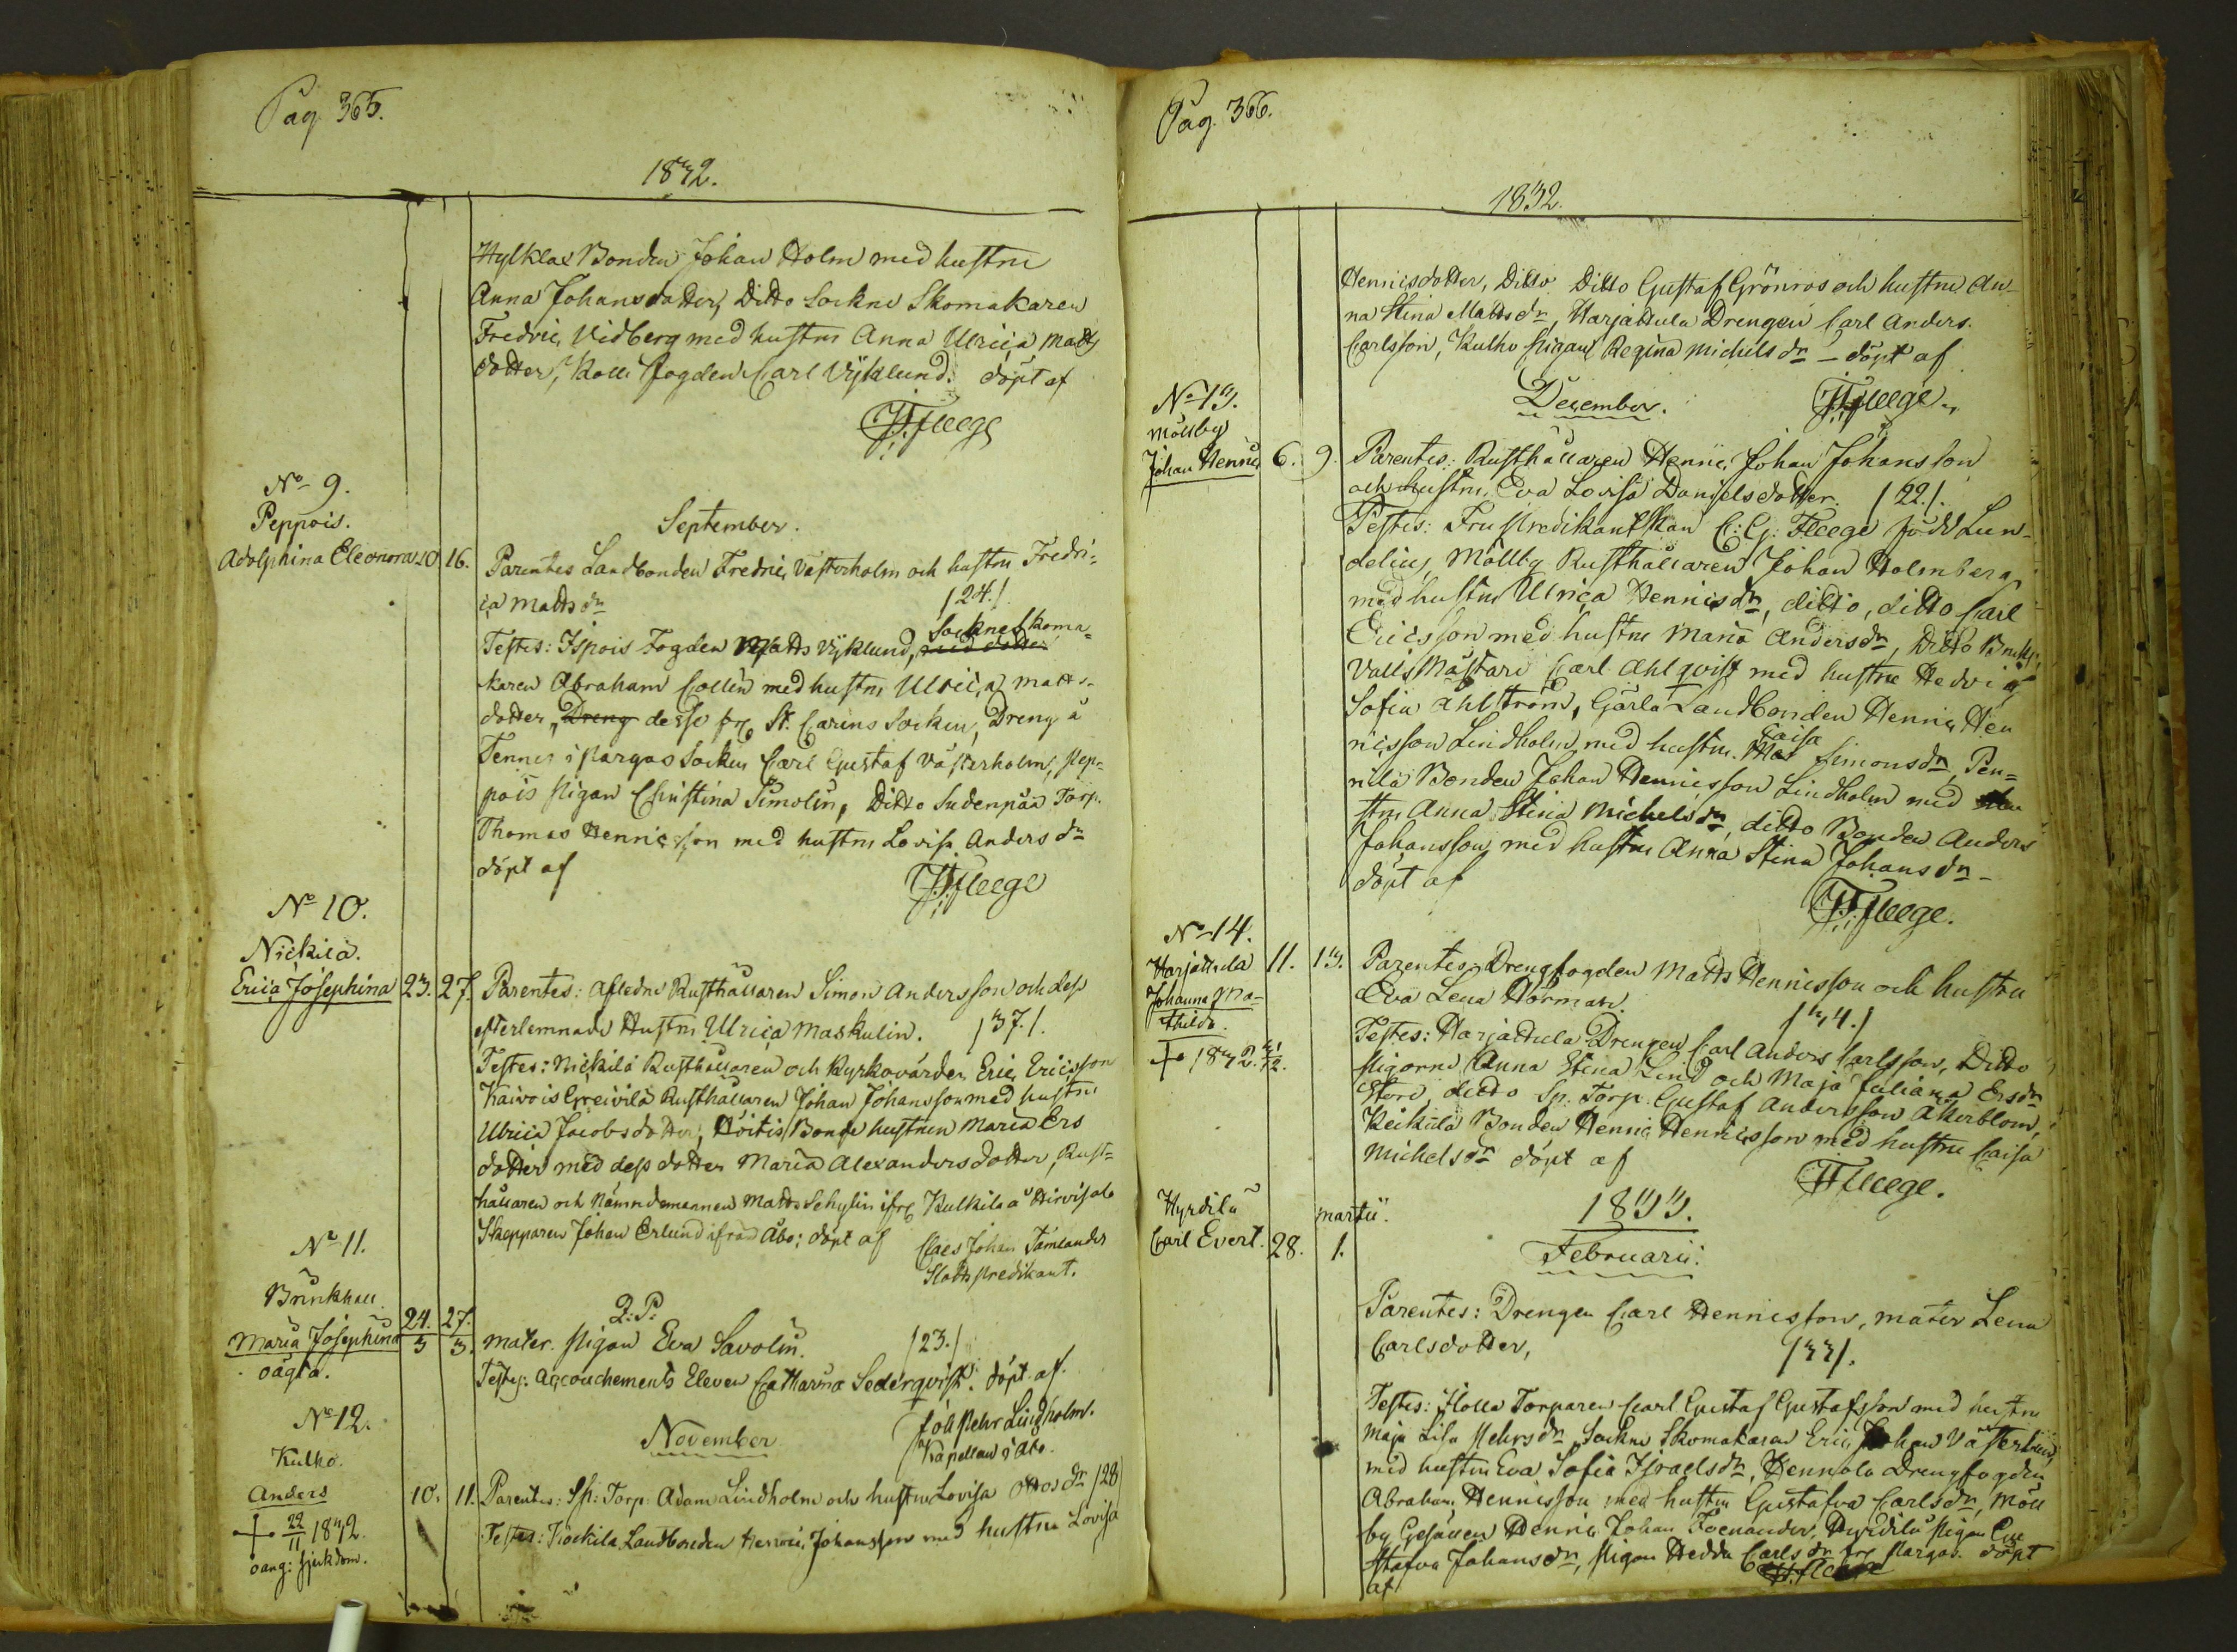 Pag 365.
1832.
Hylklax Bonden Johan Holm med hustru
Anna Johansdotter, Ditto Sockne Skomakaren
Fredric Vidberg med hustru Anna Ulrica Matts
dotter, Kolli Fogden Carl Vyklund. döpt af
Fleege
No 9.
Peppois.
September.
Adolphina Eleonora 10 16. Parentes Landbonden Fredric Västerholm och hustru Fredri=
ca Matts dr /24./
Testes: Ispois Fogden Matts Vyklund, Sockne Skoma=
karen Abraham Collin med hustru Ulrica Matts
dotter, desse frå St. Carins Socken, Dreng å
Tennes i Pargas Socken Carl Gustaf Västerholm, Pep=
pois Pigan Christina Simolin, Ditto Sudenpää Torp.
Thomas Henricsson med hustru Lovisa Anders dr
döpt af
Fleege
No 10.
Nickila.
Erica Josephina 23. 27. Parentes: Afledne Rusthållaren Simon Andersson och dess
efterlemnade Hustru Ulrica Maskulin. /37./
Testes: Nickilä Rusthållaren och Kyrkovärden Eric Ericsson
Kaivois Rusthållaren Johan Johansson med hustru
Ulrica Jacobsdotter, Bonde hustrun Maria Ers
dotter med dess dotter Maria Alexandersdotter, Rust=
hållaren och Nämndemannen Matts Schylin ifrå Kulkila å Hirvisalo
Skepparen Johan Erlund ifrån Åbo; döpt af Claes Johan Tamlander
Slotts Predikant.
No 11.
Brinkhall
Maria Josephina 24. 27.
oägta.
Q: P:
Mater. Pigan Eva Savolin. /23./
Testes: Accouchements Eleven Catharina Sederqvist. döpt af
Joh Pehr Lindholm.
Kapellan i Åbo.
No 12.
November
Kulho.
Anders 10. 11. Parentes: Sp: Torp: Adam Lindholm och hustru Lovisa Ottos dr /28/
22/11 1832.
oang: sjukdom.
Testes: Kockila Landbonden Henric Johansson med hustru Lovisa
Pag. 366.
1832.
Henricsdotter, Ditto Ditto Gustaf Grönroos och hustru An-
na Stina Mattsdr, Harjattula Drengen Carl Anders
Carlsson, Kulho Pigan Regina Michels dr - döpt af
Fleege
No 13.
Möllby
December.
Johan Henric 6. 9. Parentes: Rusthållaren Henric Johan Johansson
och hustru Eva Lovisa Danielsdotter. /22./
Testes: Fru Predikantskan C: G: Fleege född Lun-
delius, Möllby Rusthållaren Johan Holmberg
med hustru Ulrica Henricsdr, ditto, ditto Carl
Ericsson med hustru Maria Andersdr, Ditto
Mästare Carl Ahlqvist med hustru Hedvig
Sofia Ahlström, Gärla Landbonden Henric Hen
ricsson Lindholm med hustru Caisa Simonsdr, Pen=
nilä Bonden Johan Henricsson Lindholm med
stru Anna Stina Michelsdr, ditto Bonden Anders
Johansson med hustru Anna Stina Johansdr -
döpt af
Fleege.
No 14.
Harjattula 11. 13. Parentes: Drengfogden Matts Henricsson och hustru
Johanna Ma-
thilda.
Eva Lena Hörman. /34./
Testes: Harjattula Drengen Carl Anders Carlsson, Ditto
Pigorne Anna Stina Lind och Maja Juliana Ersdr
ditto Sp. Torp. Gustaf Andersson Åkerblom,
Keikilä Bonden Henric Henricsson med hustru Caisa
Michelsdr döpt af
Fleege.
Hyrdilä Martii. 1833.
Carl Evert. 28. 1.
Februarii.
Parentes: Drengen Carl Henricsson, mater Lena
Carlsdotter, /33/.
Testes: Torparen Carl Gustaf Gustafsson med hustru
Maja Lisa Pehrsdr, Sockne Skomakaren Eric Johan
med hustru Eva Sofia Israelsdr, Hennola Drengfogden
Abraham Henricsson med hustru Gustafva Carlsdr, Möll
by Gesällen Henric Johan Foenander, Hyrdilä Pigan Gu
stafva Johansdr, Pigan Hedda Carlsdr frå Pargas. döpt
af Fleege